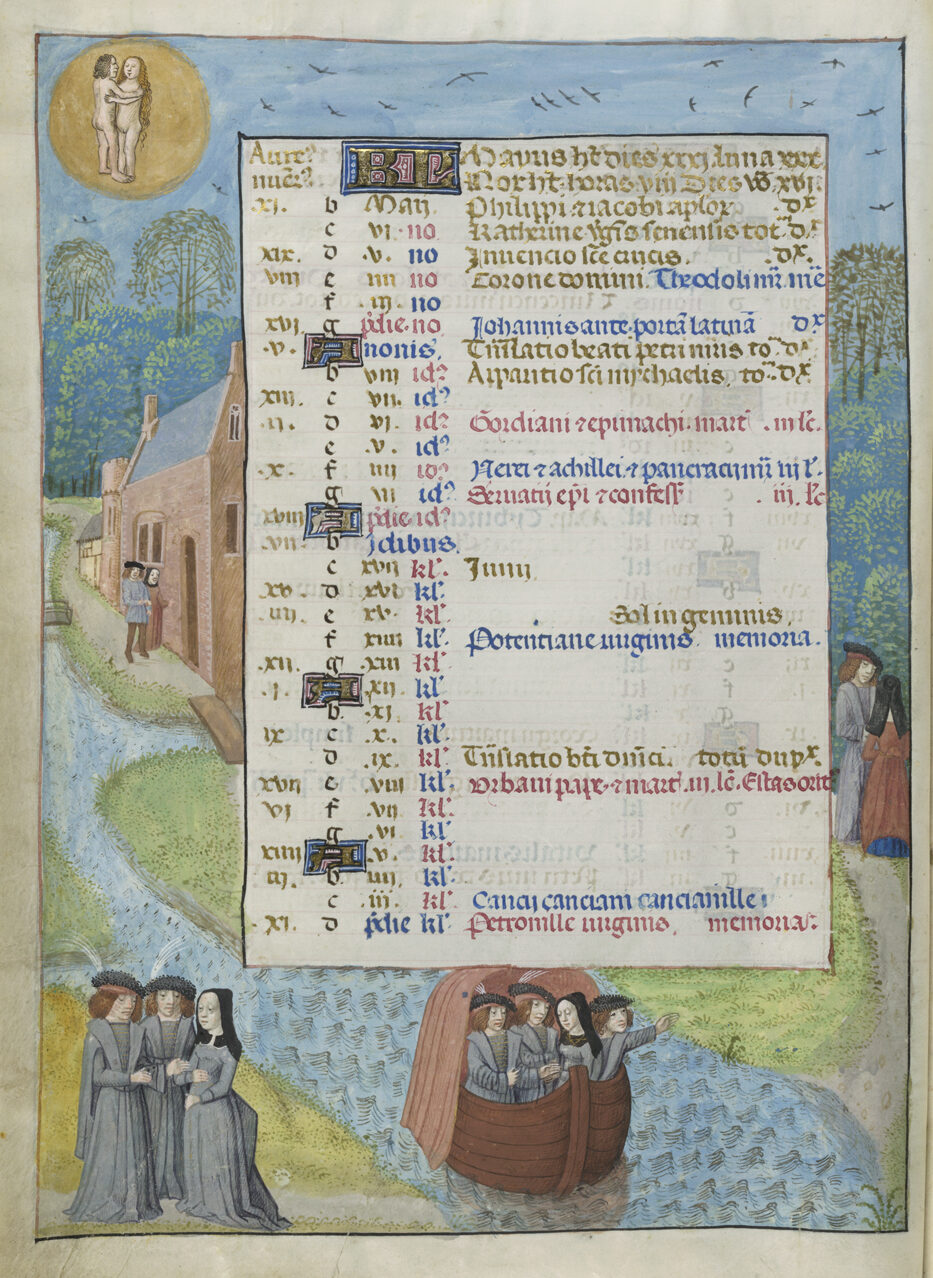 Aure⁹ KL Mayus ht dies xxxi luna xxx.
nueꝰ Nox ht horas viii Dies vo xvi.
.xi. b Maii. Philippi ⁊ iacobi aplor dx
c vi no Katherine vgis senensis tot dx
xix. d .v. no Invencio sce crucis. dx
viii e iiii no Corone domini. Theodoli mr. me
f .iii no
xvi g pdie no Johannis ante porta latina dx
.v. A nonis. Tnslatio beati petri mris to dx
b viii id⁹ Apparitio sci mychaelis. to dx
xiii. c vii. id⁹
.ii. d vi. id⁹ Gordiani ⁊ epimachi mart. iii lc.
e v. id⁹
.x. f iiii id⁹ Nerei ⁊ achillei. ⁊ pancracii mr iii l.
g iii id⁹ Servatii epi ⁊ confess .iii. lc
xviii A pdie id⁹
.vii. b Idibus.
c xvii kl. Junii.
xv. d xvi kl.
.iiii. e xv. kl. Sol in geminis.
f xiiii kl. Potentiane virginis memoria.
.xii. g xiii kl.
.i. A .xii. kl.
b .xi. kl.
ix c .x. kl.
d .ix. kl. Tnslatio bti dnici. totu dupx
xvii e .viii kl. Urbani pape ⁊ mart. iii. lc. Estas orit
vi f .vii kl.
g .vi kl.
xiiii A .v. kl.
iii. b iiii. kl.
c iii. kl. Cancii canciani cancianille
.xi. d pdie kl. Petronille virginis. memoria.